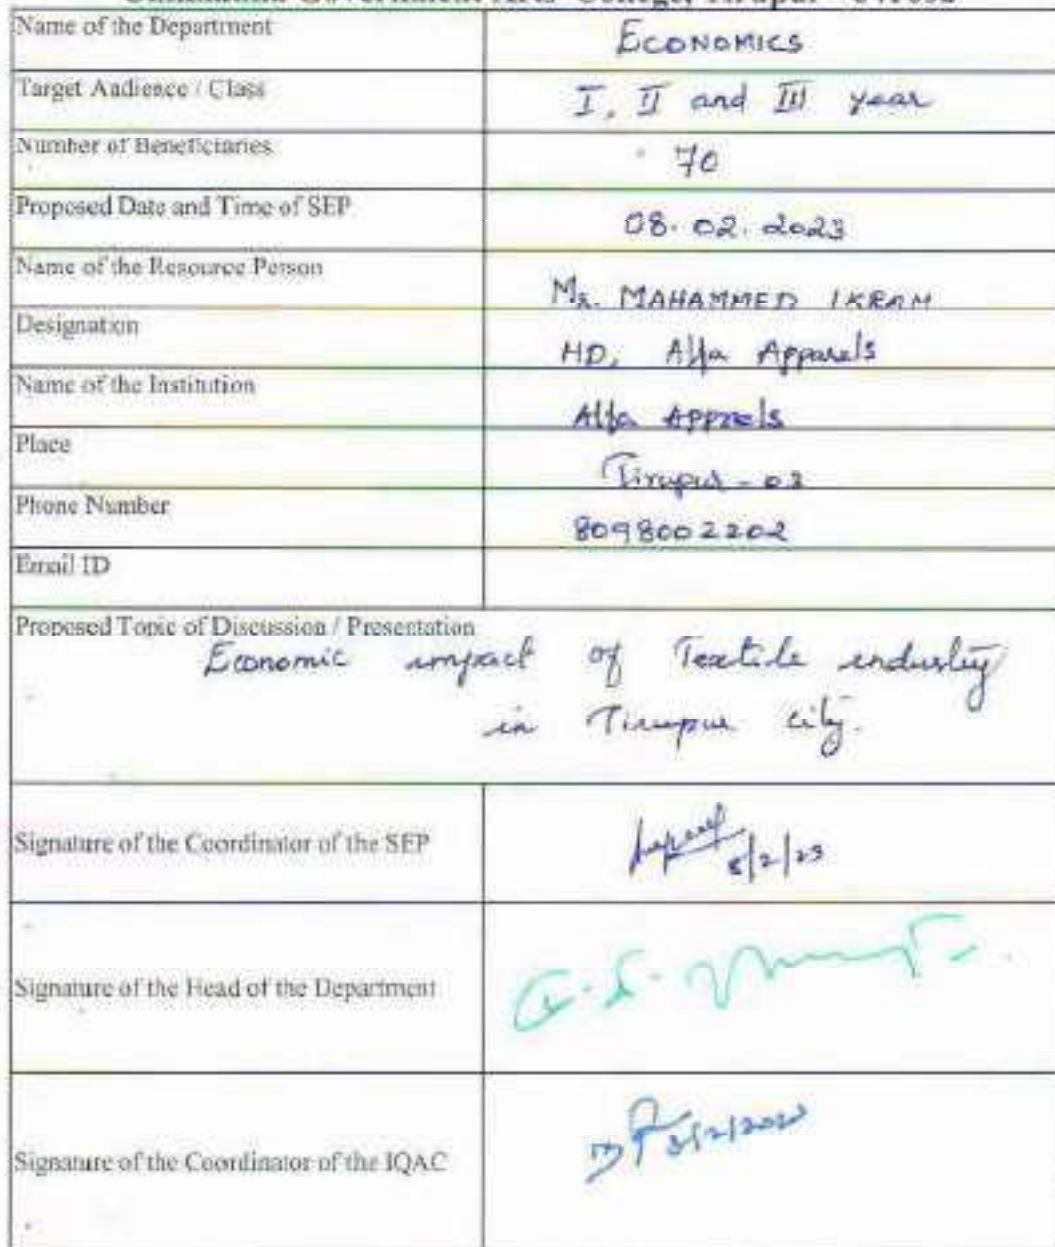 Government Arts College, Tirupur
Name of the Department ECONOMICS
Target Audience / Class I, II and III year
Number of Beneficiaries 70
Proposed Date and Time of SEP 08.02.2023
Name of the Resource Person Mr. MAHAMMED IKRAM
Designation MD, Alfa Apparels
Name of the Institution Alfa Apprels
Place Tirupur - 03
Phone Number 8098002202
Email ID
Proposed Topic of Discussion / Presentation
Economic impact of Textile industry
in Tirupur city.
Signature of the Coordinator of the SEP 8/2/23
Signature of the Head of the Department
Signature of the Coordinator of the IQAC